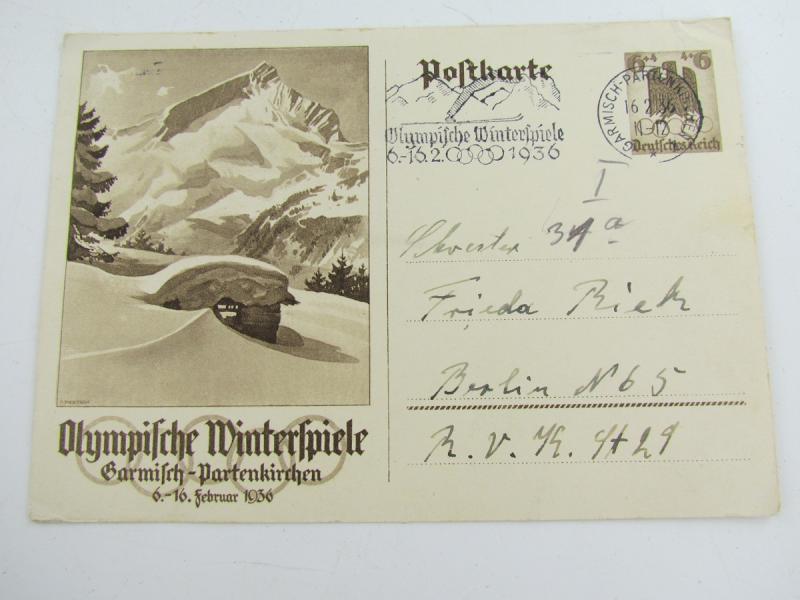 Olympische Winterspiele
Garmisch-Partenkirchen
6.-16. Februar 1936
Postkarte
6+4 4+6
Deutsches Reich
GARMISCH-PARTENKIRCHEN
16.2.36
11-12
Olympische Winterspiele
6.-16.2. 1936
I
34a
Schwester
Frieda Rieck
Berlin N 65
R. V. K. St 29